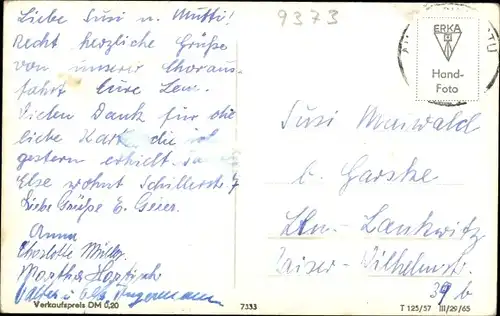 Liebe Susi u. Mutti!
Recht herzliche Grüße
von unserer Choraus-
fahrt Eure Len.
Vielen Dank für die
liebe Karte, die ich
gestern erhielt.
Else wohnt Schillerstr. 7
Liebe Grüße E. Geier.
Anna
Charlotte Müller
Martha
Walter u. Else
Verkaufspreis DM 0,20
9373
ERKA
Hand-
Foto
Susi Maiwald
b. Garske
Bln. Lankwitz
Kaiser-Wilhelmstr.
39 b
7333
T 125/57 III/29/65